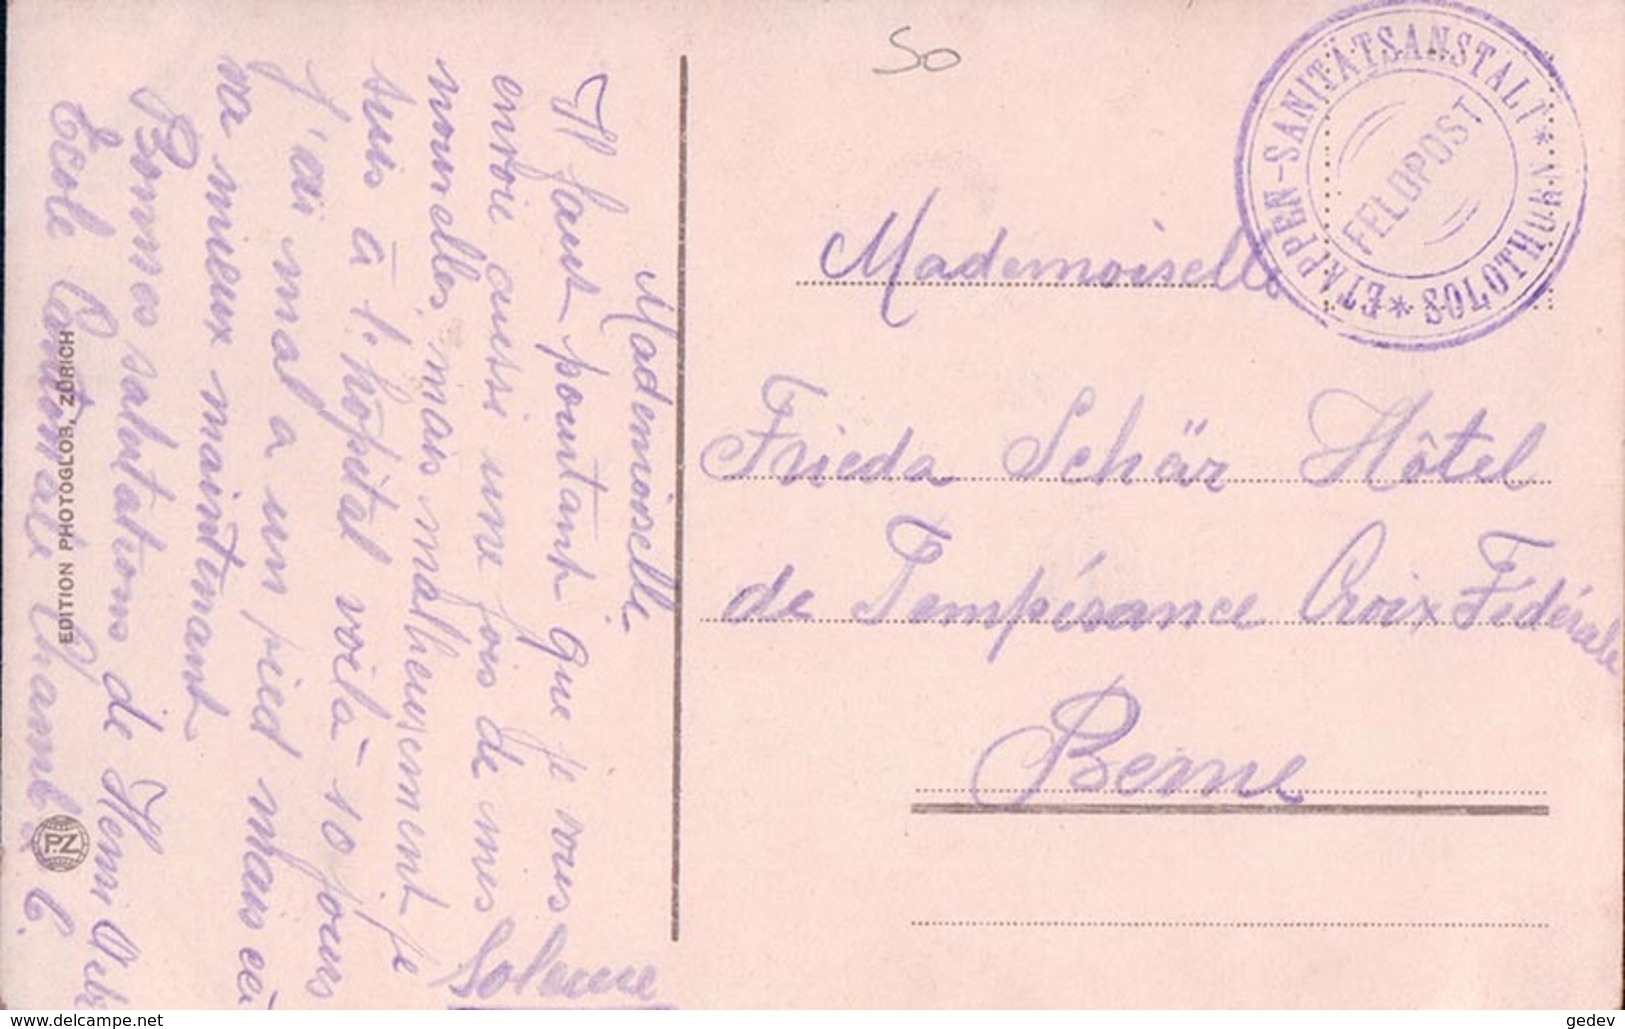 Mademoiselle.
Il faut pourtant que je vous
envoie aussi une fois de mes
nouvelles, mais malheureusement je
suis à l'hôpital voilà 10 jours
j'ai mal a un pied mais ca
va mieux maintenant
Bonnes salutations de Henri
Ecole Chambr. 6.
Soleure
EDITION PHOTOGLOB, ZÜRICH
P.Z
50
ETAPPEN-SANITÄTSANSTALT * SOLOTHURN *
FELDPOST
Mademoiselle
Frieda Schär Hôtel
de Tempérance Croix Fédérale
Berne
www.delcampe.net
gedev